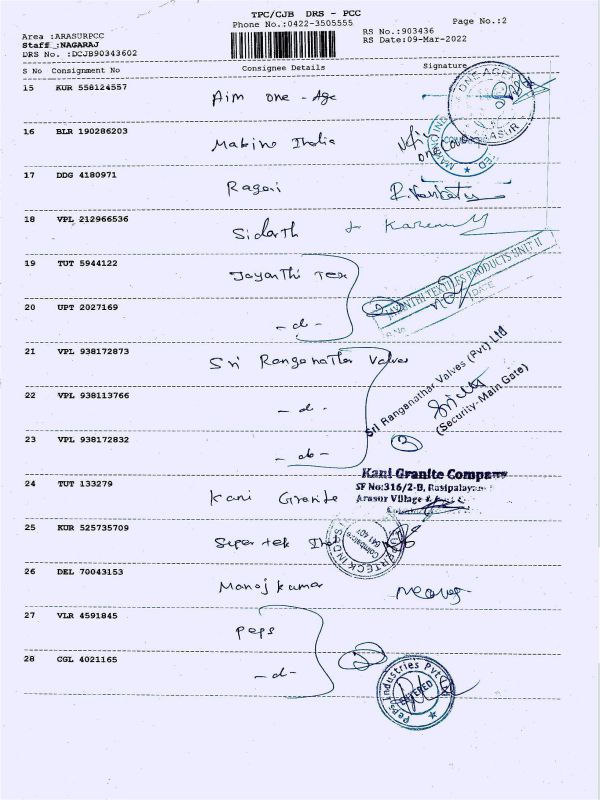 TPC/CJB DRS - PCC
Phone No.:0422-3505555
Page No.:2
Area :ARASURPCC
RS No.:903436
Staff :NAGARAJ
RS Date:09-Mar-2022
DRS No. :DCJB90343602
S No Consignment No Consignee Details Signature
15 KUR 558124557 Aim one - Age
16 BLR 190286203 Makino India
17 DDG 4180971 Ragavi R.Venkatesh
18 VPL 212966536 Sidarth
19 TUT 5944122 Jayanthi Tex
JAYANTHI TEXTILES PRODUCTS UNIT II
DATE
20 UPT 2027169 - d -
21 VPL 938172873 Sri Ranganathar Valves
Sri Ranganathar Valves (Pvt) Ltd
(Security-Main Gate)
22 VPL 938113766 - d -
23 VPL 938172832 - do - 3
24 TUT 133279 Kani Granite
Kani Granite Company
SF No:316/2-B, Rasipalayam
Arasur Village
25 KUR 525735709 Super tek Ind
Coimbatore
641 407
26 DEL 70043153 Manoj kumar Manoj
27 VLR 4591845 Peps
28 CGL 4021165 - d -
Peps Industries Pvt Ltd
ENTERED